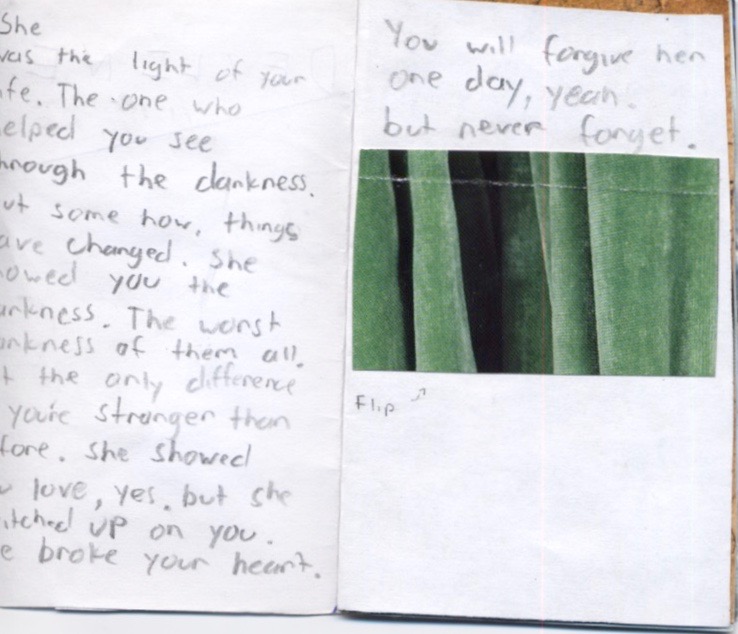 She
was the light of your
fe. The one who
elped you see
hrough the darkness.
ut some how, things
ave changed. She
owed you the
arkness. The worst
arkness of them all.
t the only difference
you're stronger than
fore. She showed
u love, yes. but she
itched up on you.
e broke your heart.
You will forgive her
one day, yeah.
but never forget.
Flip